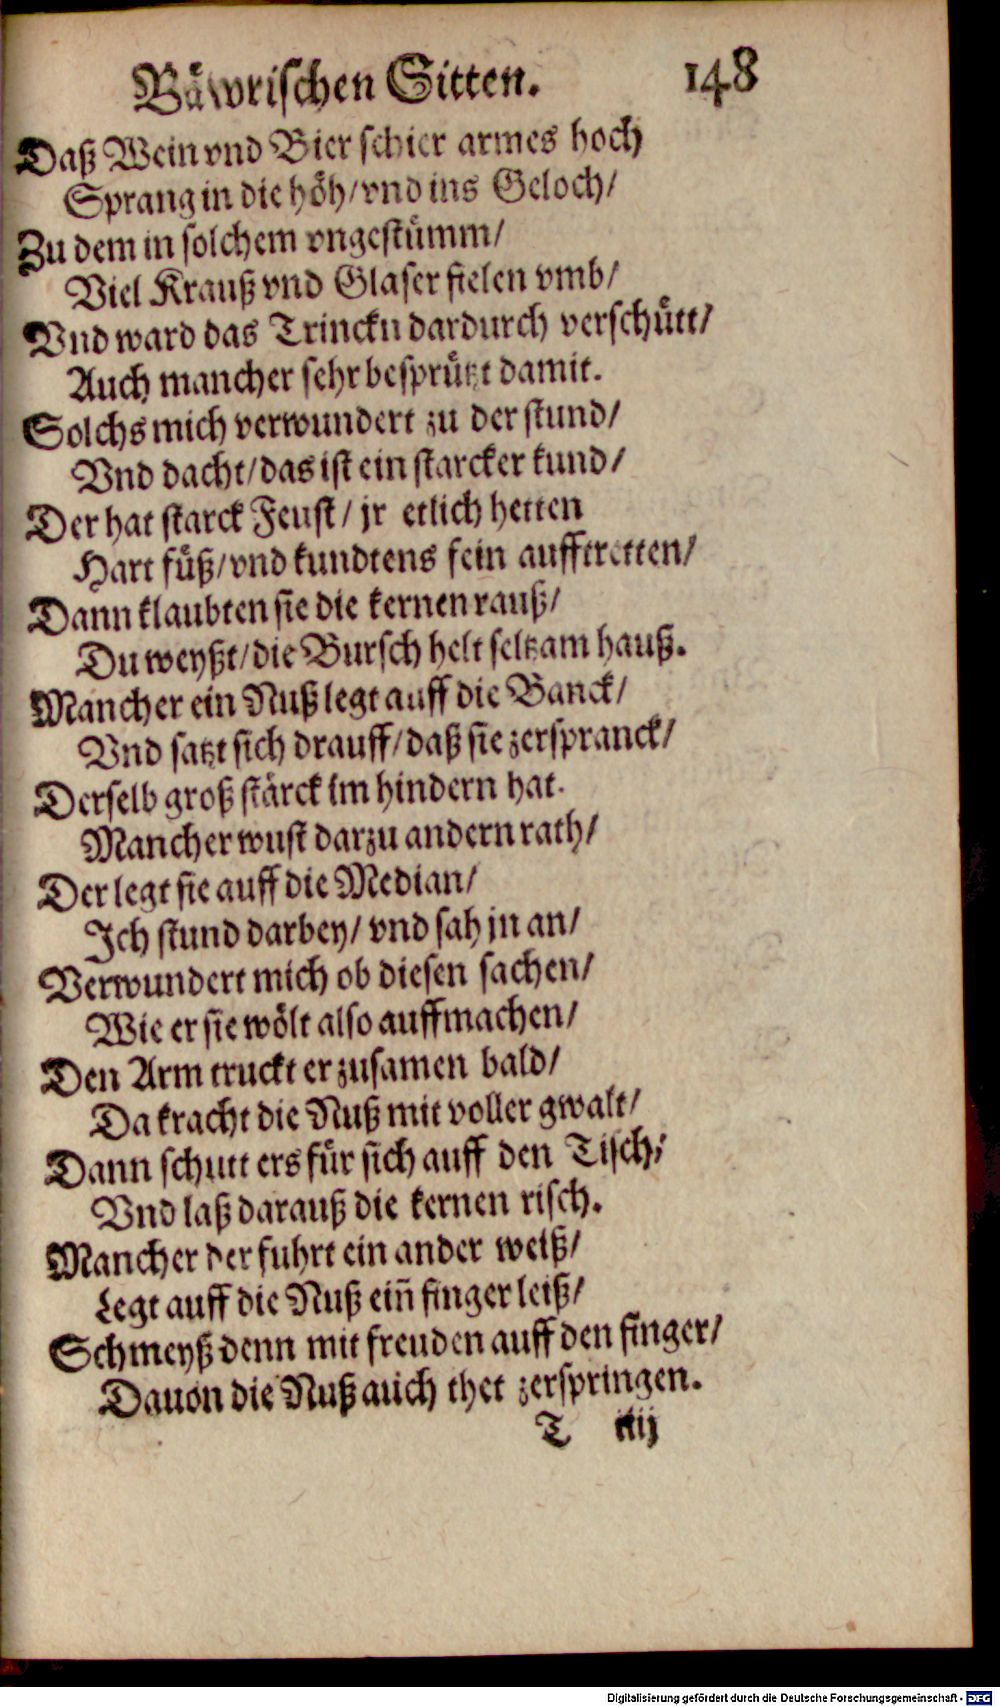 Bäwrischen Sitten. 148
Daß Wein vnd Bier schier armes hoch
Sprang in die höh/ vnd ins Geloch/
Zu dem in solchem vngestümm/
Viel Krauß vnd Glaser fielen vmb/
Vnd ward das Trinckn dardurch verschütt/
Auch mancher sehr besprützt damit.
Solchs mich verwundert zu der stund/
Vnd dacht/ das ist ein starcker kund/
Der hat starck Feust/ jr etlich hetten
Hart füß/ vnd kundtens fein aufftretten/
Dann klaubten sie die kernen rauß/
Du weyßt/ die Bursch helt seltzam hauß.
Mancher ein Nuß legt auff die Banck/
Vnd satzt sich drauff/ daß sie zerspranck/
Derselb groß stärck im hindern hat.
Mancher wust darzu andern rath/
Der legt sie auff die Median/
Ich stund darbey/ vnd sah jn an/
Verwundert mich ob diesen sachen/
Wie er sie wölt also auffmachen/
Den Arm truckt er zusamen bald/
Da kracht die Nuß mit voller gwalt/
Dann schutt ers für sich auff den Tisch/
Vnd laß darauß die kernen risch.
Mancher der fuhrt ein ander weiß/
Legt auff die Nuß eiñ finger leiß/
Schmeyß denn mit freuden auff den finger/
Dauon die Nuß auch thet zerspringen.
T iiij
Digitalisierung gefördert durch die Deutsche Forschungsgemeinschaft - DFG